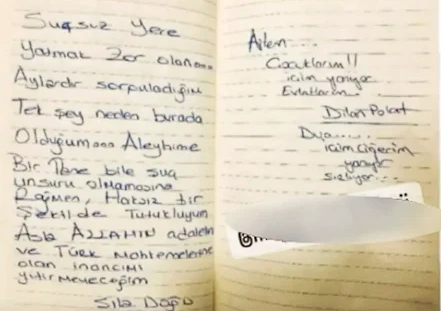 Suçsuz Yere
Yatmak Zor olan ama
Aylardır sorguladığım
Tek şey neden burada
Olduğum Aleyhime
Bir Tane bile suç
unsuru olmamasına
Rağmen, Haksız bir
Şekilde Tutukluyum
Asla ALLAHIN adaletine
ve Türk mahkemelerine
olan inancımı
yitirmeyeceğim
Sıla Doğu
Ailem...
Çocuklarım!!
içim yanıyor
Evlatlarım...
Dilan Polat
Dua.....
içim Ciğerim
yanıyor
sızlıyor...